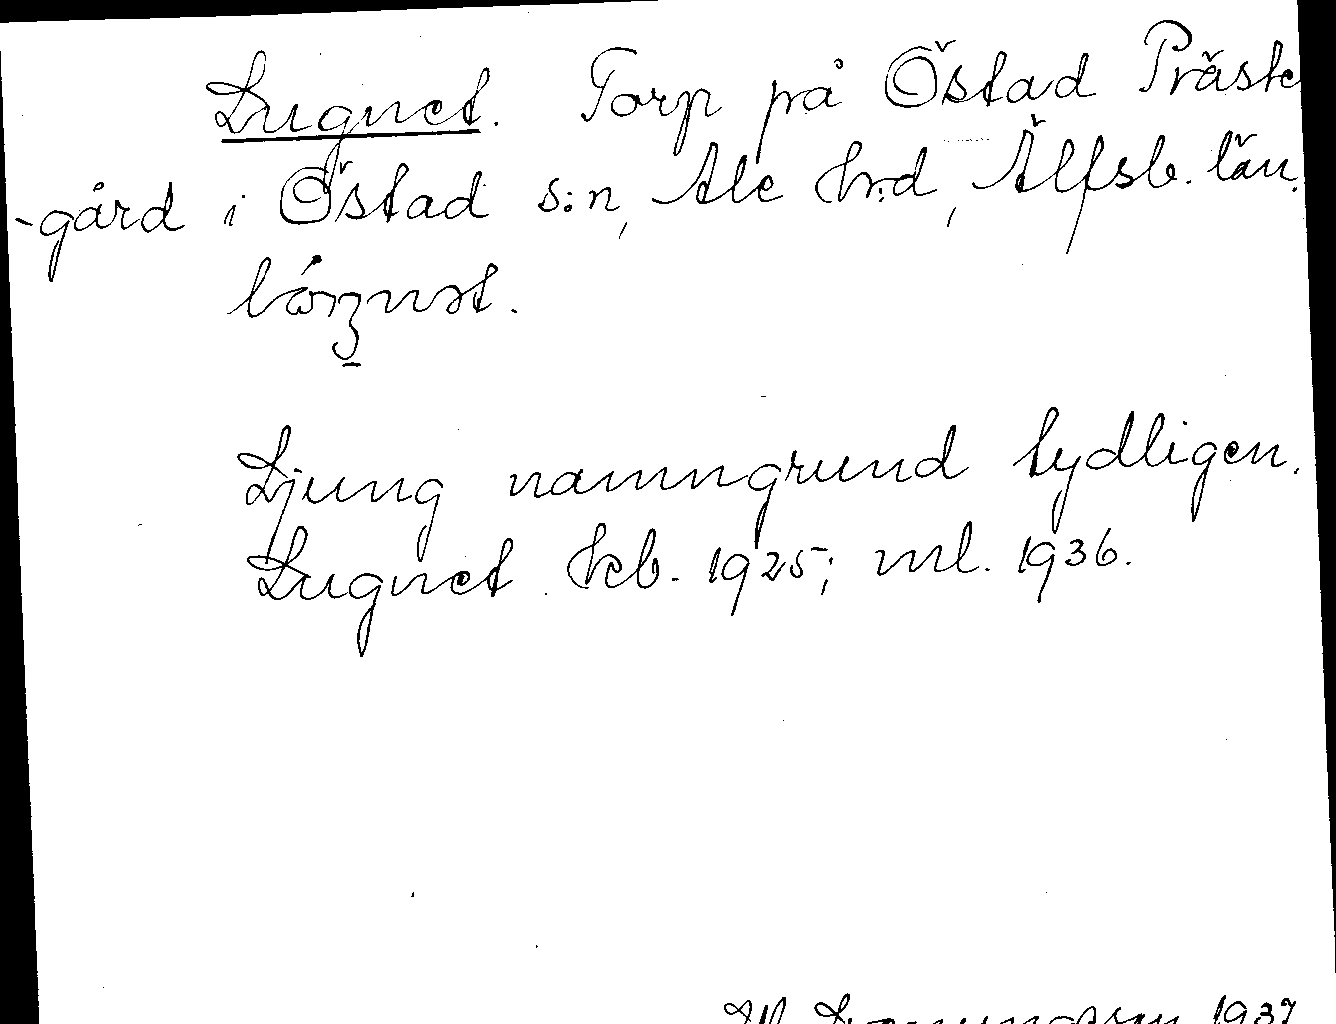 Lugnet. Torp på Östad Präste
-gård i Östad s:n, Ale hrd, Älfsb. län.
Ljung namngrund tydligen.
Lugnet Jeb. 1925; ml. 1936.
1937